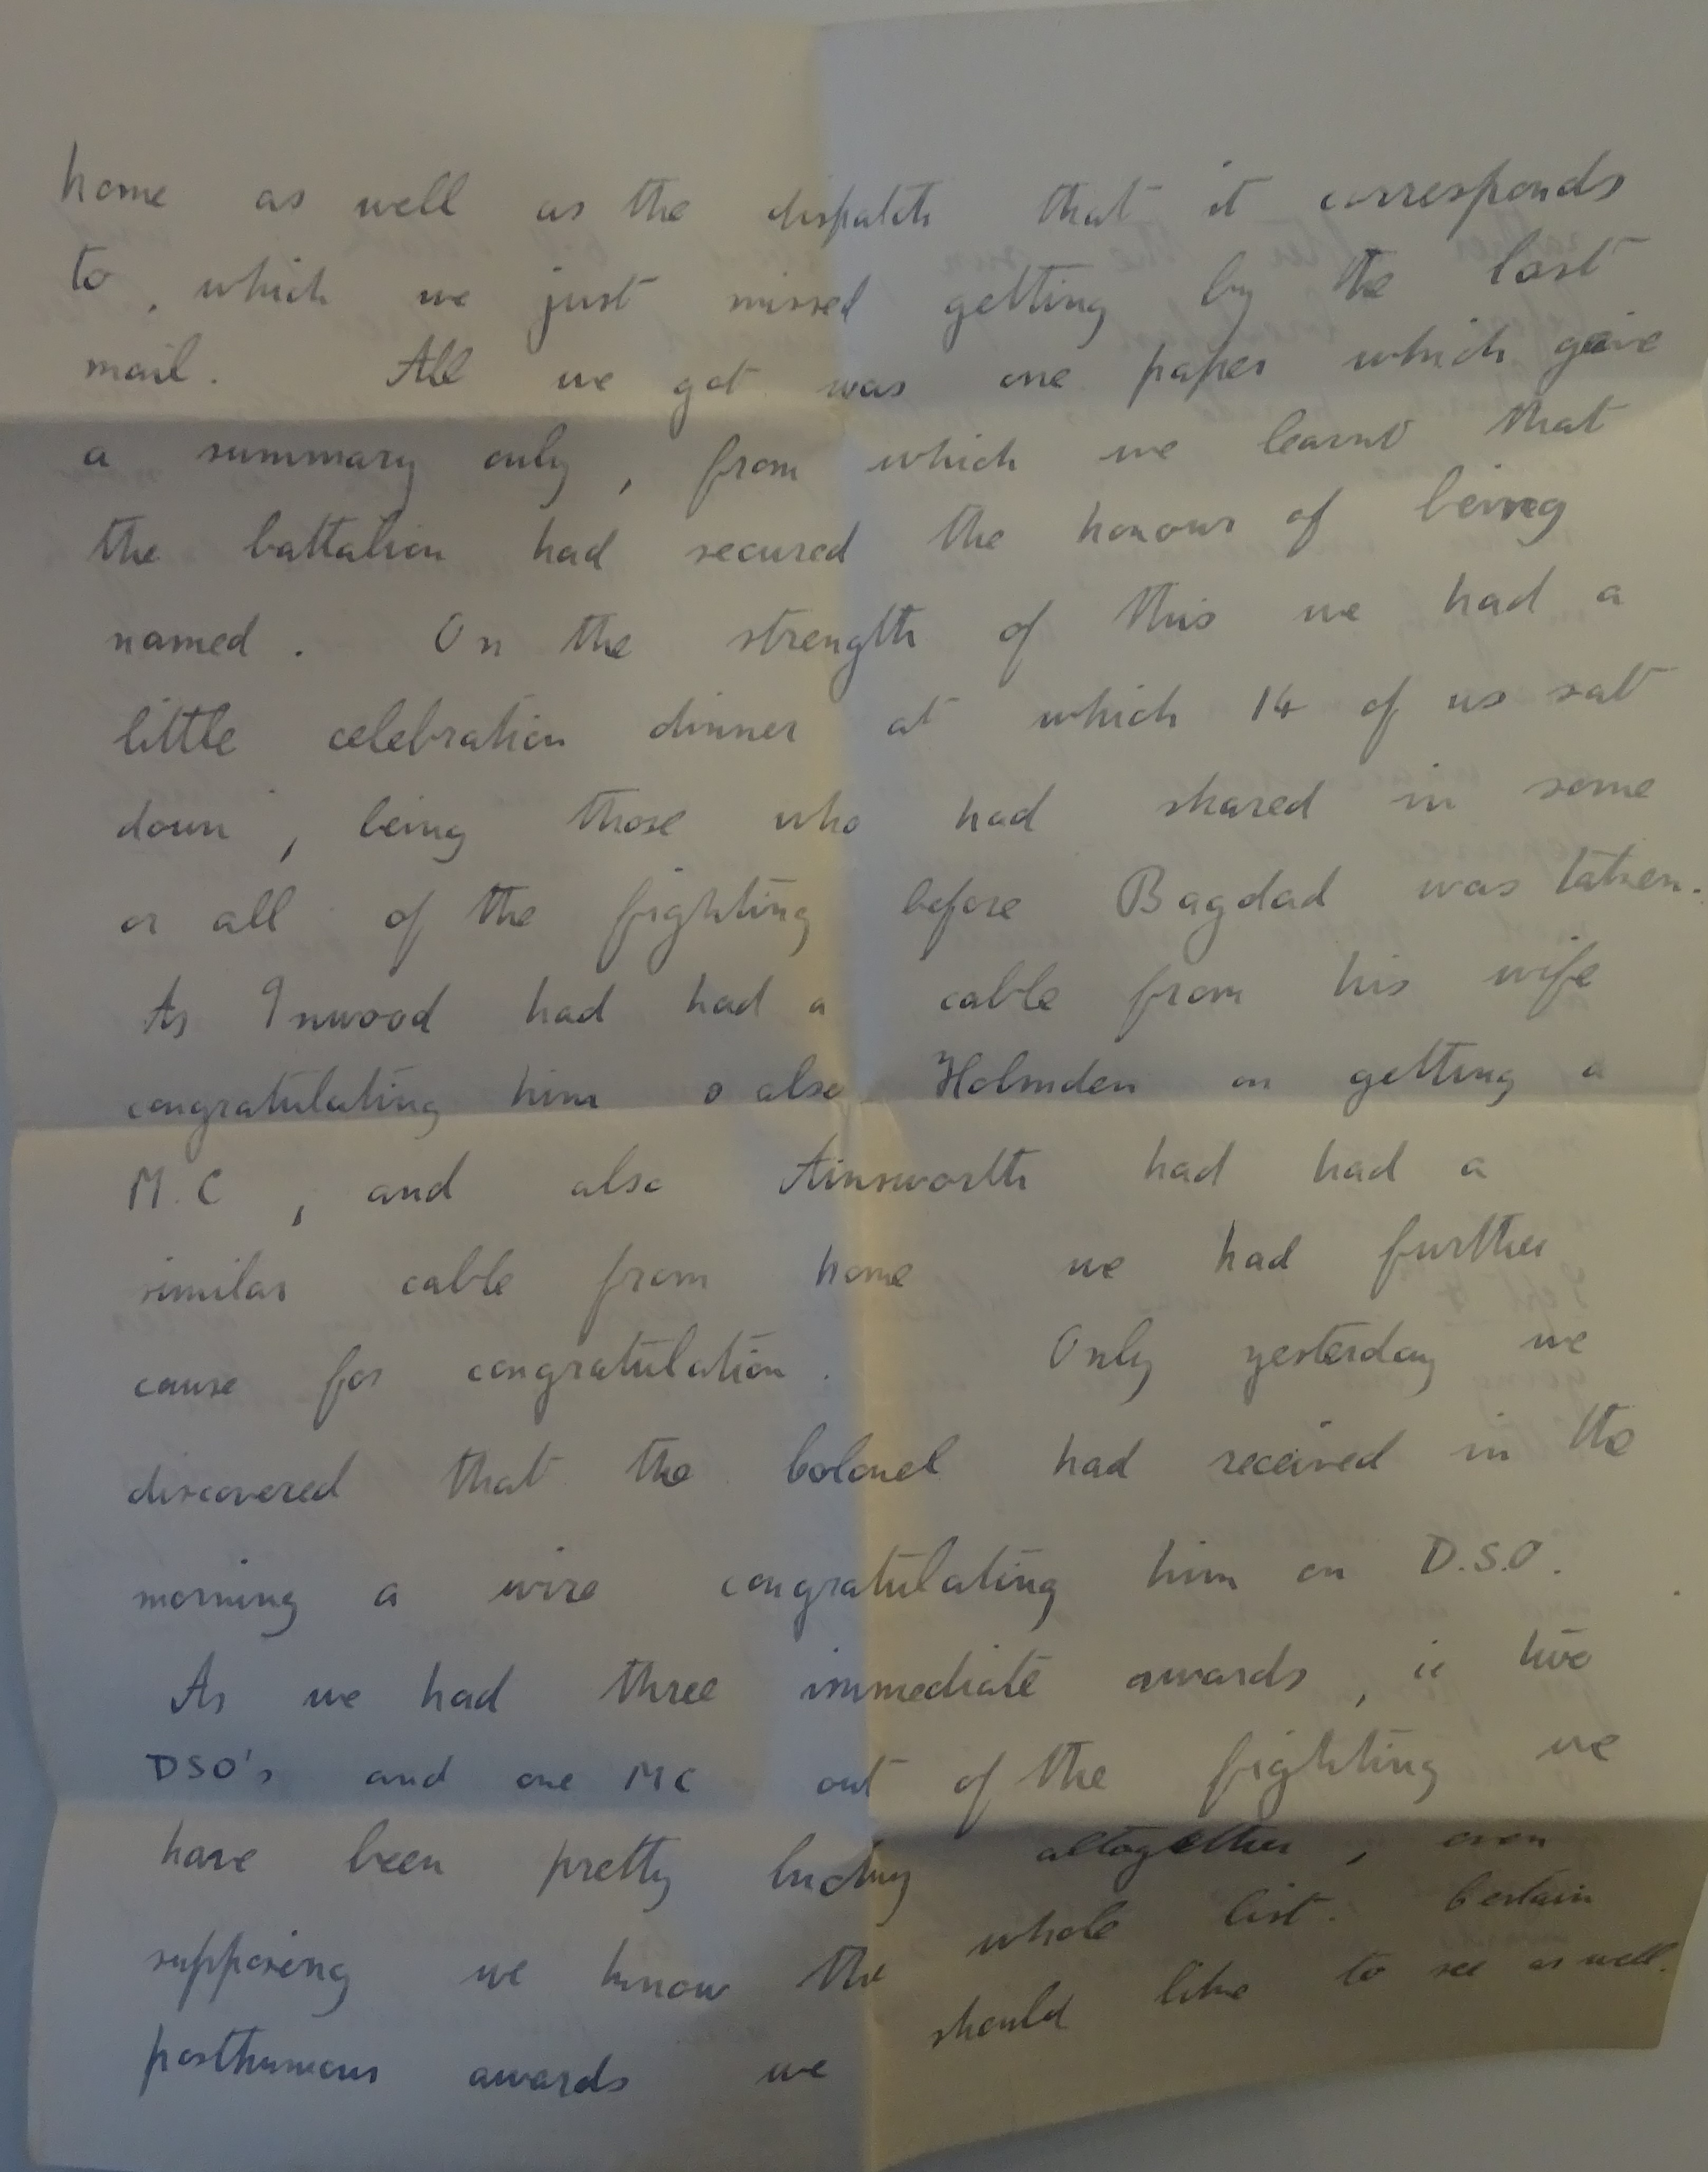 home as well as the dispatch that it corresponds
to, which we just missed getting by the last
mail. All we got was one paper which gave
a summary only, from which we learnt that
the battalion had secured the honour of being
named. On the strength of this we had a
little celebration dinner at which 14 of us sat
down, being those who had shared in some
or all of the fighting before Bagdad was taken.
As Inwood had had a cable from his wife
congratulating him & also Holmden on getting a
M.C, and also Ainsworth had had a
similar cable from home we had further
cause for congratulation. Only yesterday we
discovered that the Colonel had received in the
morning a wire congratulating him on D.S.O.
As we had three immediate awards, ie two
DSO's and one MC out of the fighting we
have been pretty lucky altogether, even
supposing we know the whole list. Certain
posthumous awards we should like to see as well.